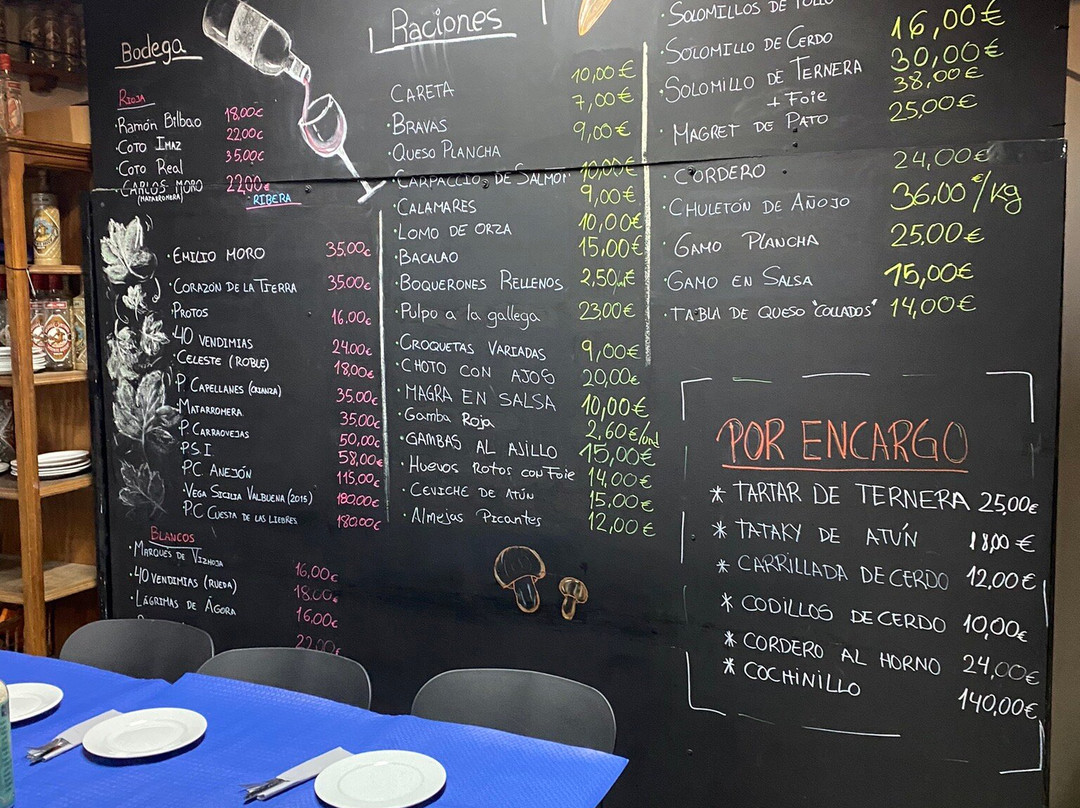 Bodega
RIOJA
·Ramón Bilbao 18,00€
·Coto Imaz 22,00€
·Coto Real 35,00€
·CARLOS MORO 22,00€
(MATARROMERA)
RIBERA
·EMILIO MORO 35,00€
·CORAZÓN DE LA TIERRA 35,00€
·PROTOS 16,00€
·40 VENDIMIAS 24,00€
·CELESTE (ROBLE) 18,00€
·P. CAPELLANES (CRIANZA) 35,00€
·MATARROMERA 35,00€
·P. CARRAOVEJAS 50,00€
·P.S.I 58,00€
·PC ANEJÓN 115,00€
·VEGA SICILIA VALBUENA (2015) 180,00€
·PC CUESTA DE LAS LIEBRES 180,00€
BLANCOS
·MARQUÉS DE VIZHOJA 16,00€
·40 VENDIMIAS (RUEDA) 18,00€
·LÁGRIMAS DE ÁGORA 16,00€
22,00€
Raciones
CARETA 10,00€
·BRAVAS 7,00€
·QUESO PLANCHA 9,00€
·CARPACCIO DE SALMON 10,00€
·CALAMARES 9,00€
·LOMO DE ORZA 10,00€
·BACALAO 15,00€
·BOQUERONES RELLENOS 2,50
·Pulpo a la gallega 23,00€
·CROQUETAS VARIADAS 9,00€
·CHOTO CON AJOS 20,00€
·MAGRA EN SALSA 10,00€
·Gamba Roja 2,60€/und
·GAMBAS AL AJILLO 15,00€
·Huevos Rotos con Foie 14,00€
·CEVICHE DE ATÚN 15,00€
·Almejas Picantes 12,00€
·SOLOMILLOS DE POLLO 16,00€
·SOLOMILLO DE CERDO 30,00€
·SOLOMILLO DE TERNERA 38,00€
+ Foie
·MAGRET DE PATO 25,00€
·CORDERO 24,00€
·CHULETÓN DE AÑOJO 36,00€/Kg
·GAMO PLANCHA 25,00€
·GAMO EN SALSA 15,00€
·TABLA DE QUESO "COLLADOS" 14,00€
POR ENCARGO
* TARTAR DE TERNERA 25,00€
* TATAKY DE ATÚN 18,00€
* CARRILLADA DE CERDO 12,00€
* CODILLOS DE CERDO 10,00€
* CORDERO AL HORNO 24,00€
* COCHINILLO 140,00€